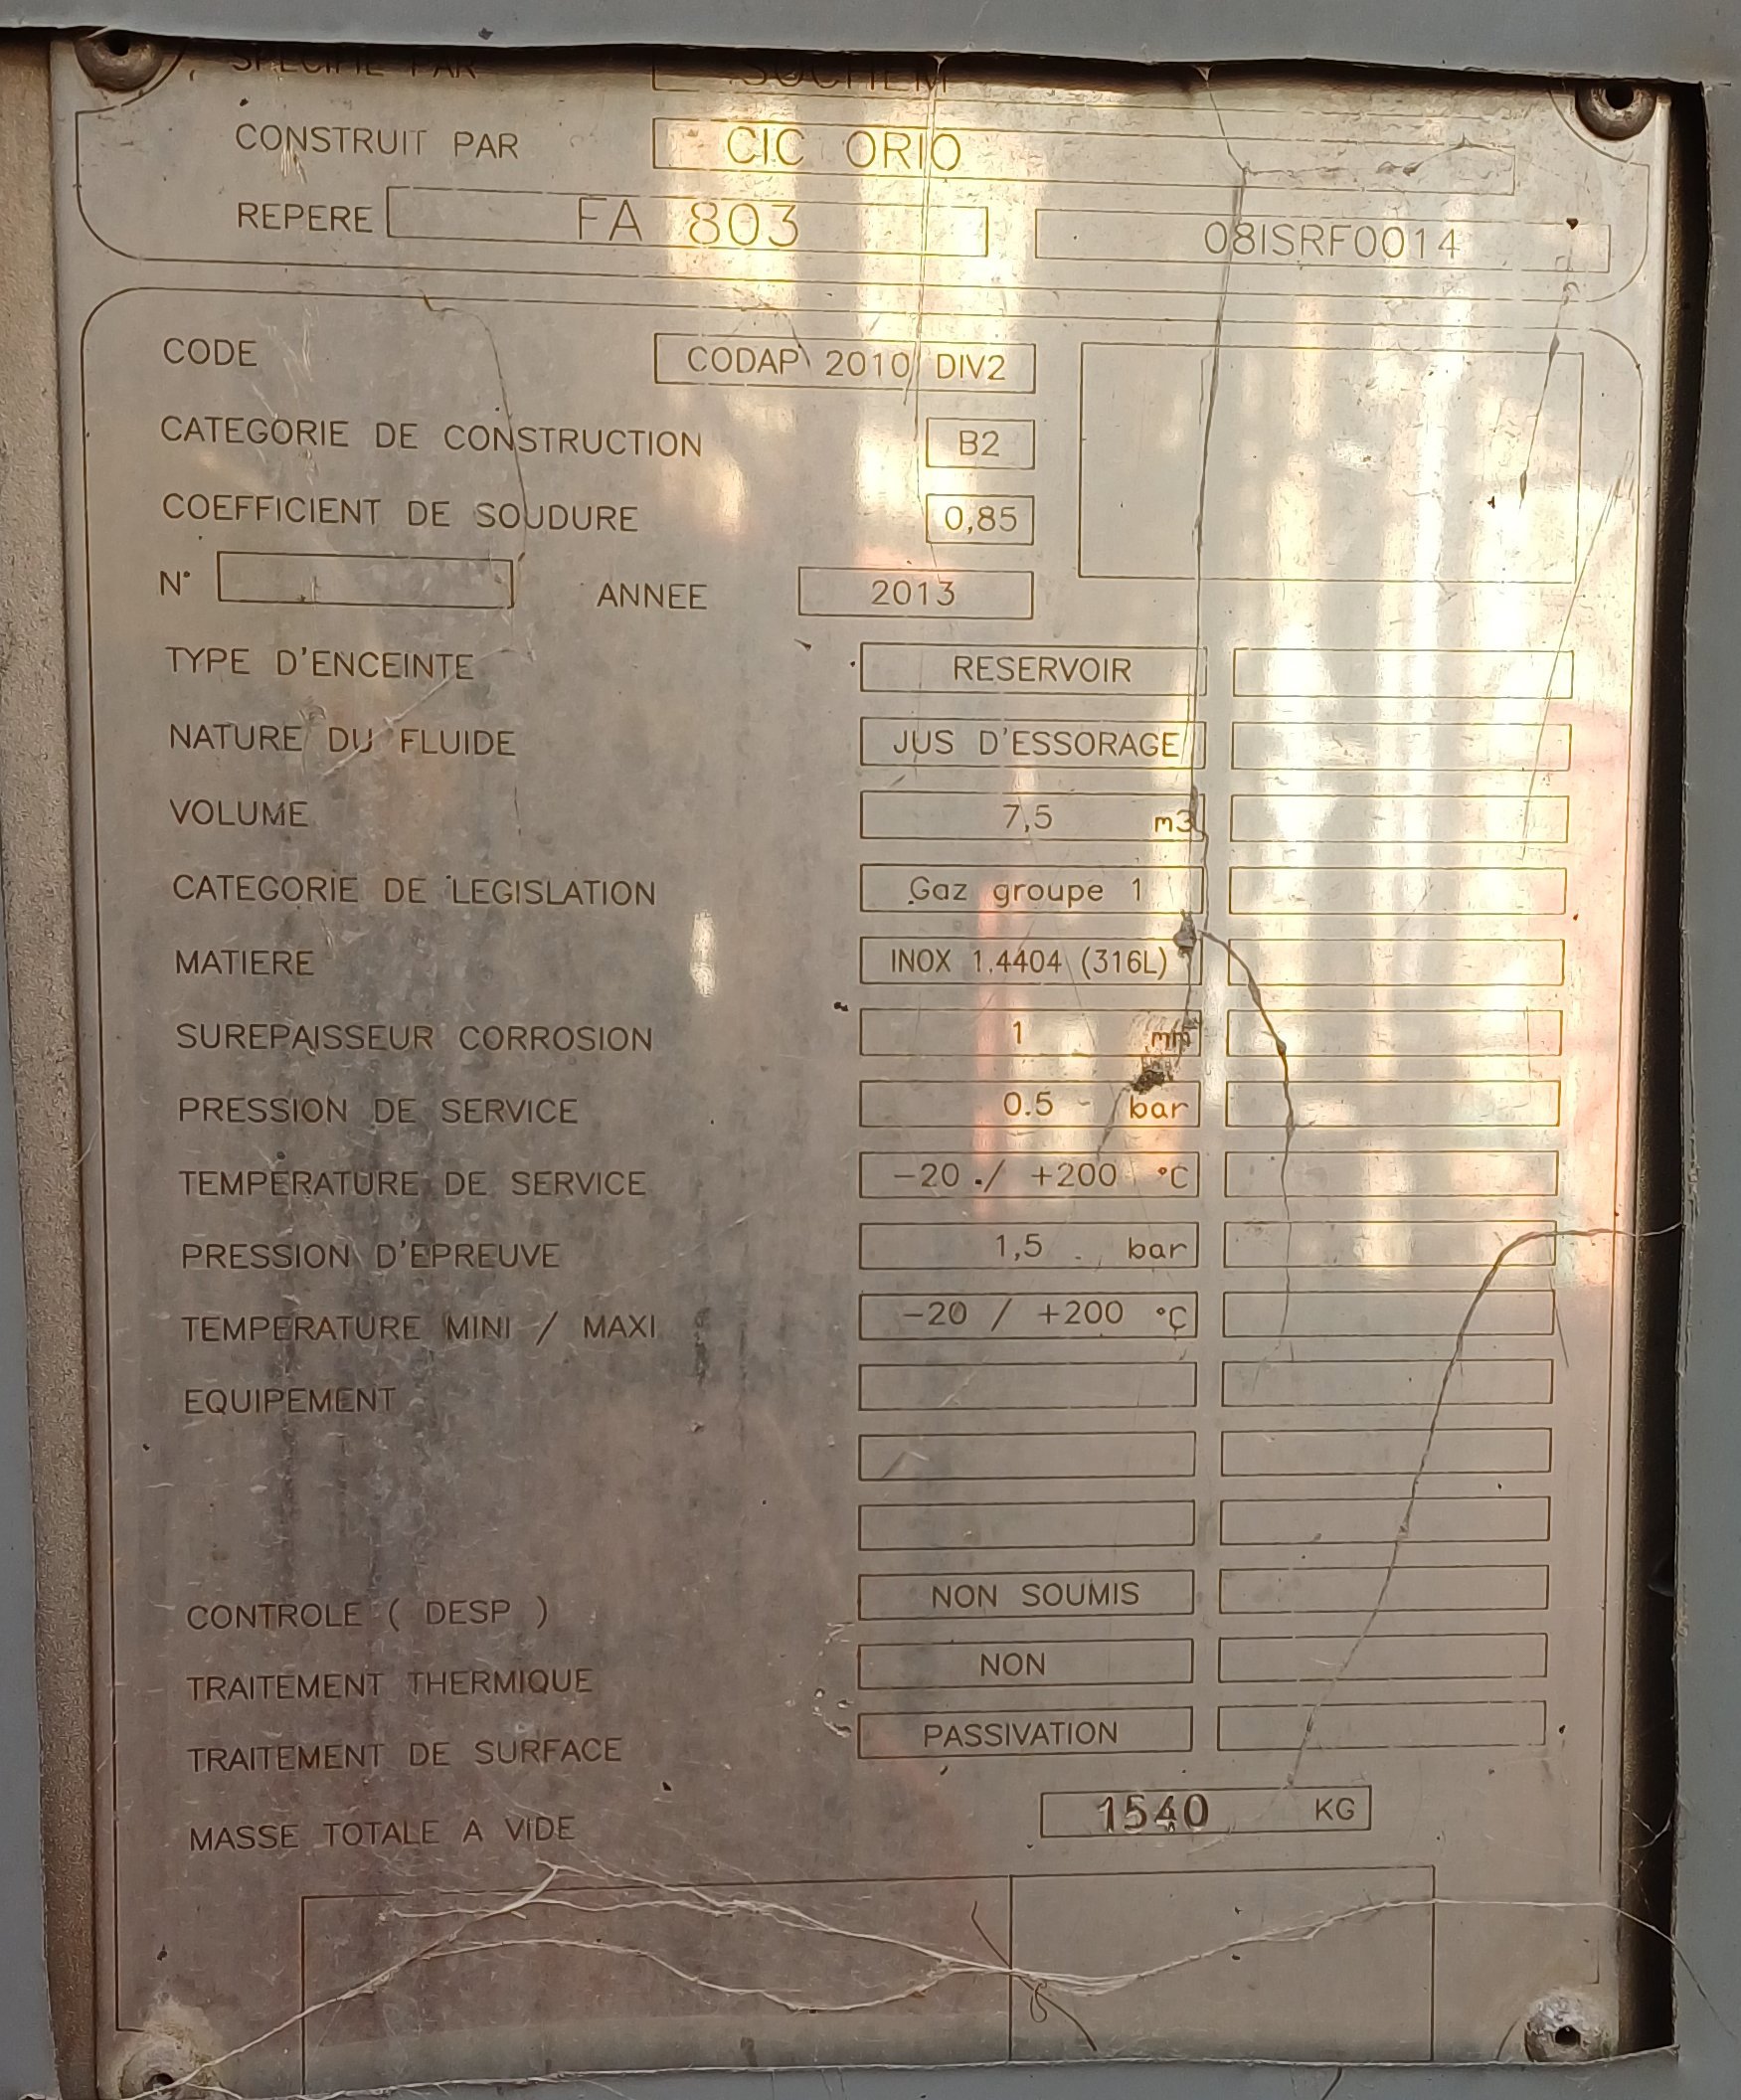 SPECIFIE PAR SOCHEM
CONSTRUIT PAR CIC ORIO
REPERE FA 803 08ISRF0014
CODE CODAP 2010 DIV2
CATEGORIE DE CONSTRUCTION B2
COEFFICIENT DE SOUDURE 0,85
N° ANNEE 2013
TYPE D'ENCEINTE RESERVOIR
NATURE DU FLUIDE JUS D'ESSORAGE
VOLUME 7,5 m3
CATEGORIE DE LEGISLATION Gaz groupe 1
MATIERE INOX 1.4404 (316L)
SUREPAISSEUR CORROSION 1 mm
PRESSION DE SERVICE 0.5 bar
TEMPERATURE DE SERVICE -20 / +200 °C
PRESSION D'EPREUVE 1,5 bar
TEMPERATURE MINI / MAXI -20 / +200 °C
EQUIPEMENT
CONTROLE ( DESP ) NON SOUMIS
TRAITEMENT THERMIQUE NON
TRAITEMENT DE SURFACE PASSIVATION
MASSE TOTALE A VIDE 1540 KG